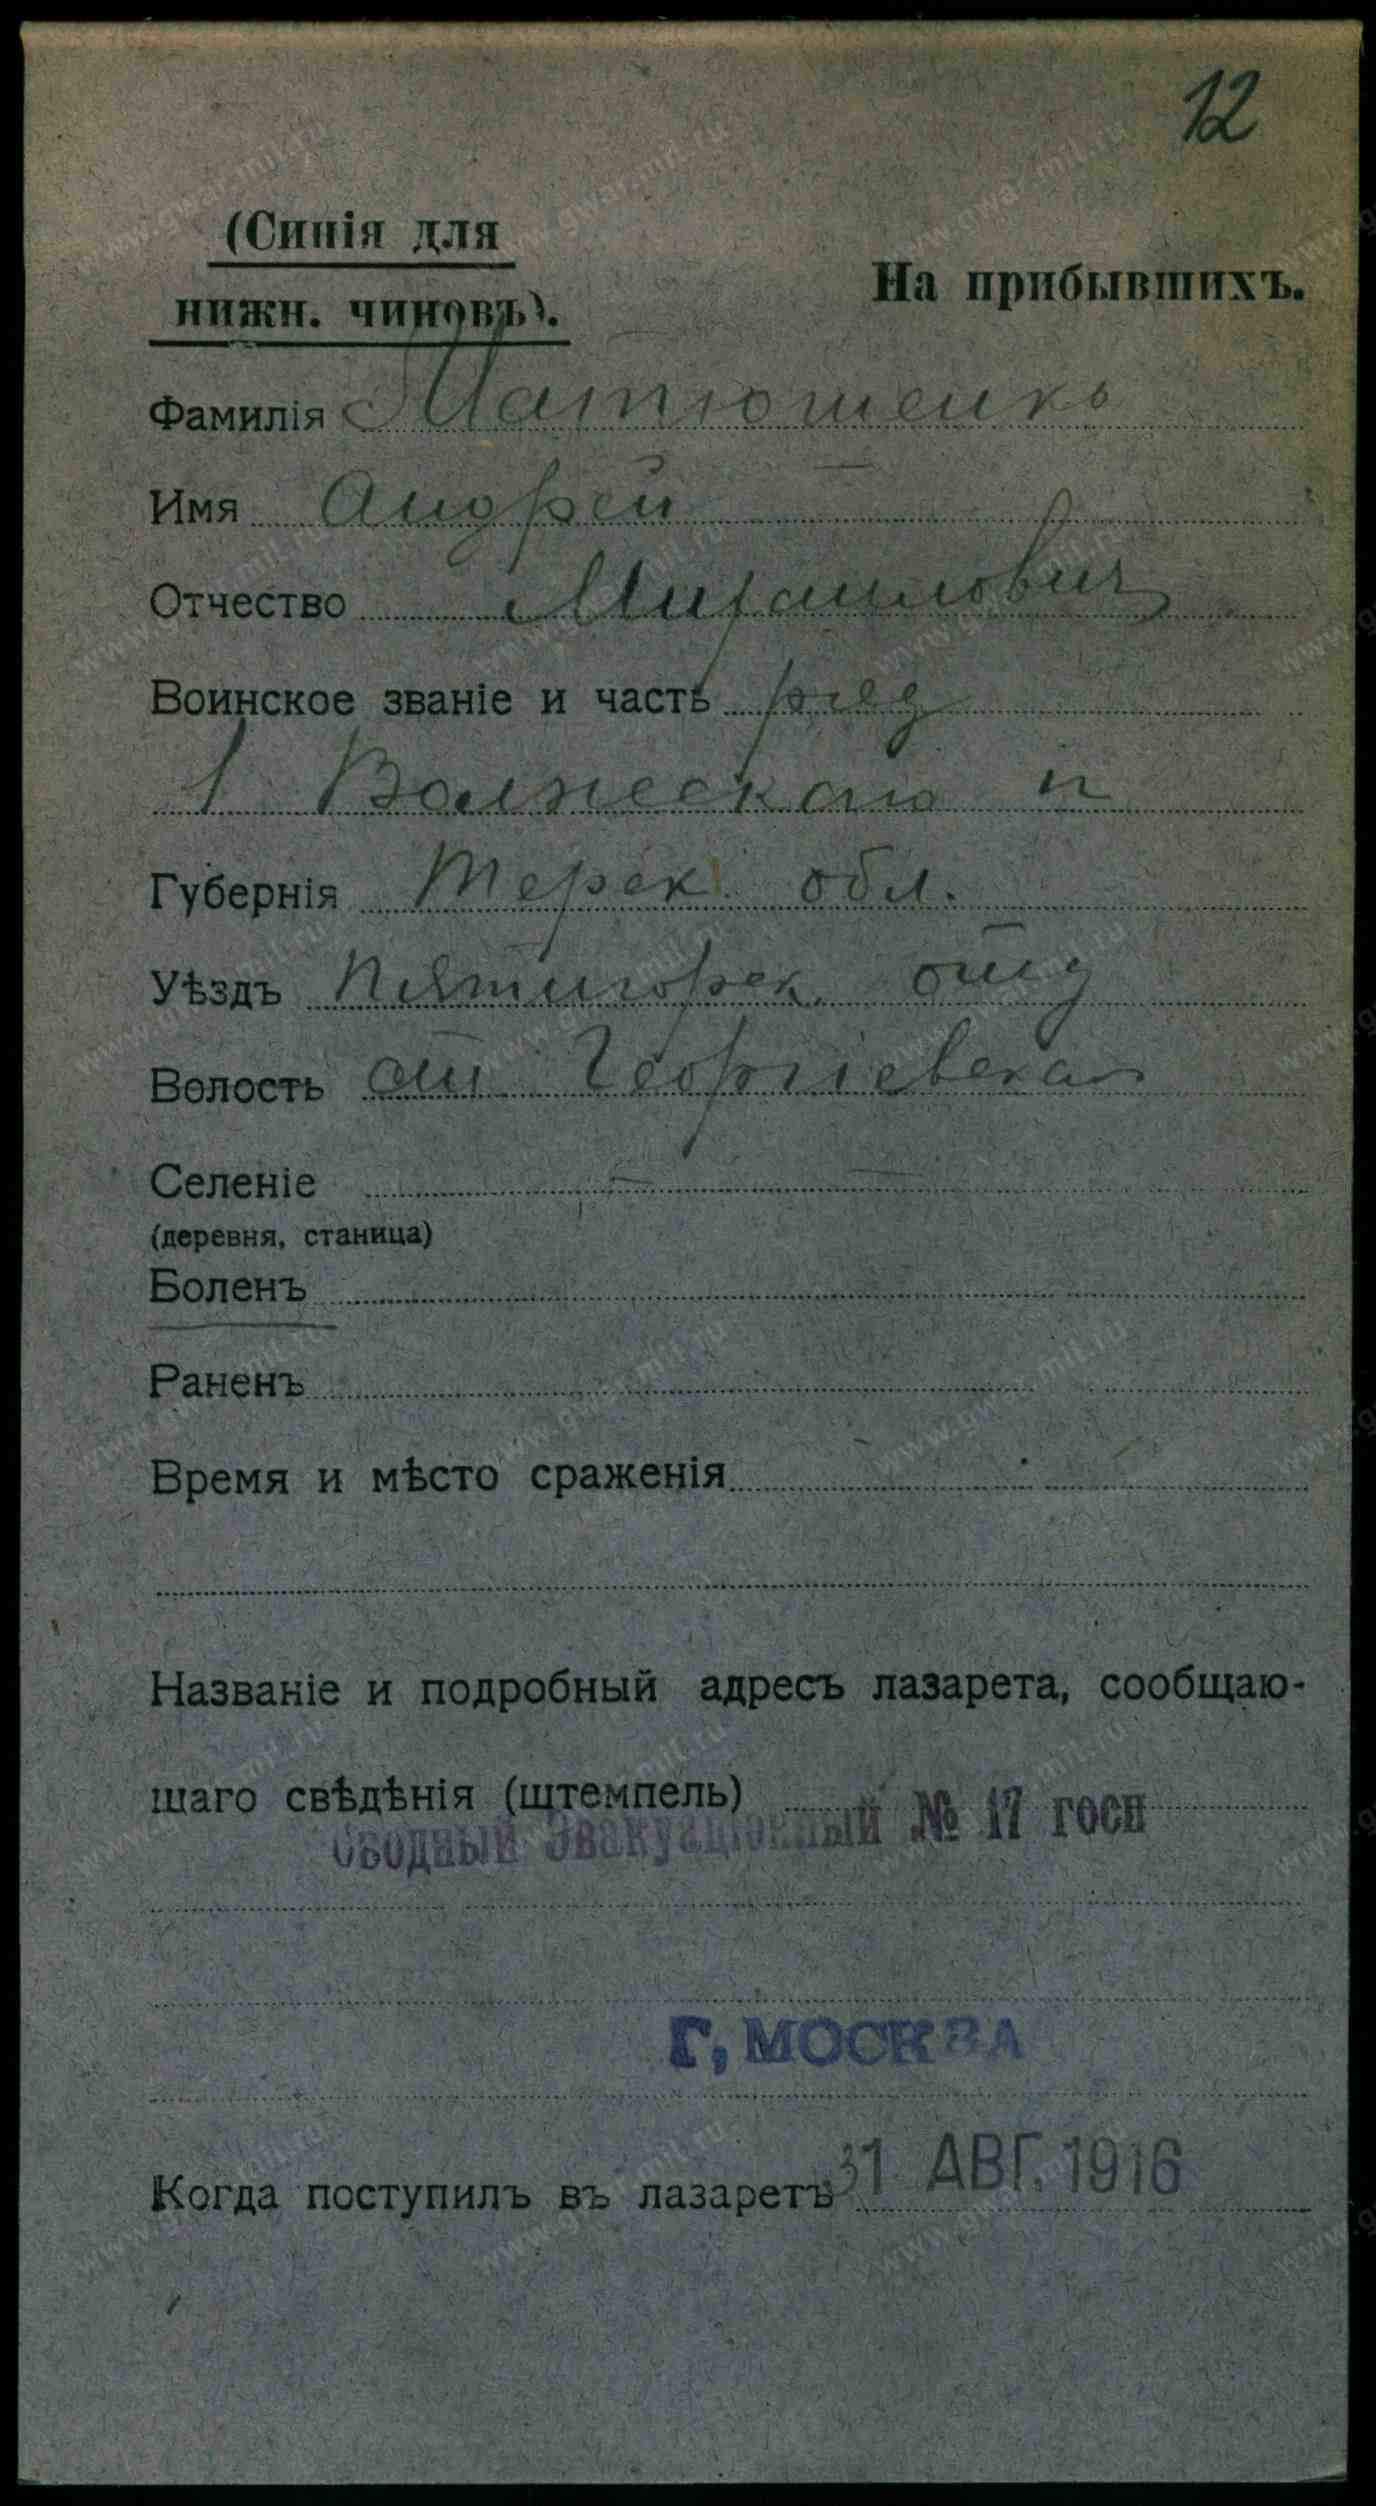 12
(Синія для
нижн. чиновъ).
На прибывшихъ.
Фамилія Матюшенко
Имя Андрей
Отчество Михаилович
Воинское званіе и часть ряд
1 Волжеского п
Губернія Терек. обл.
Уѣздъ Пятигорск. отд
Волость ст Георгіевская
Селеніе
(деревня, станица)
Боленъ
Раненъ
Время и мѣсто сраженія
Названіе и подробный адресъ лазарета, сообщаю-
щаго свѣдѣнія (штемпель)
Сводный Эвакуаціонный № 17 госп
Г, МОСКВА
Когда поступилъ въ лазаретъ 31 АВГ. 1916
www.gwar.mil.ru